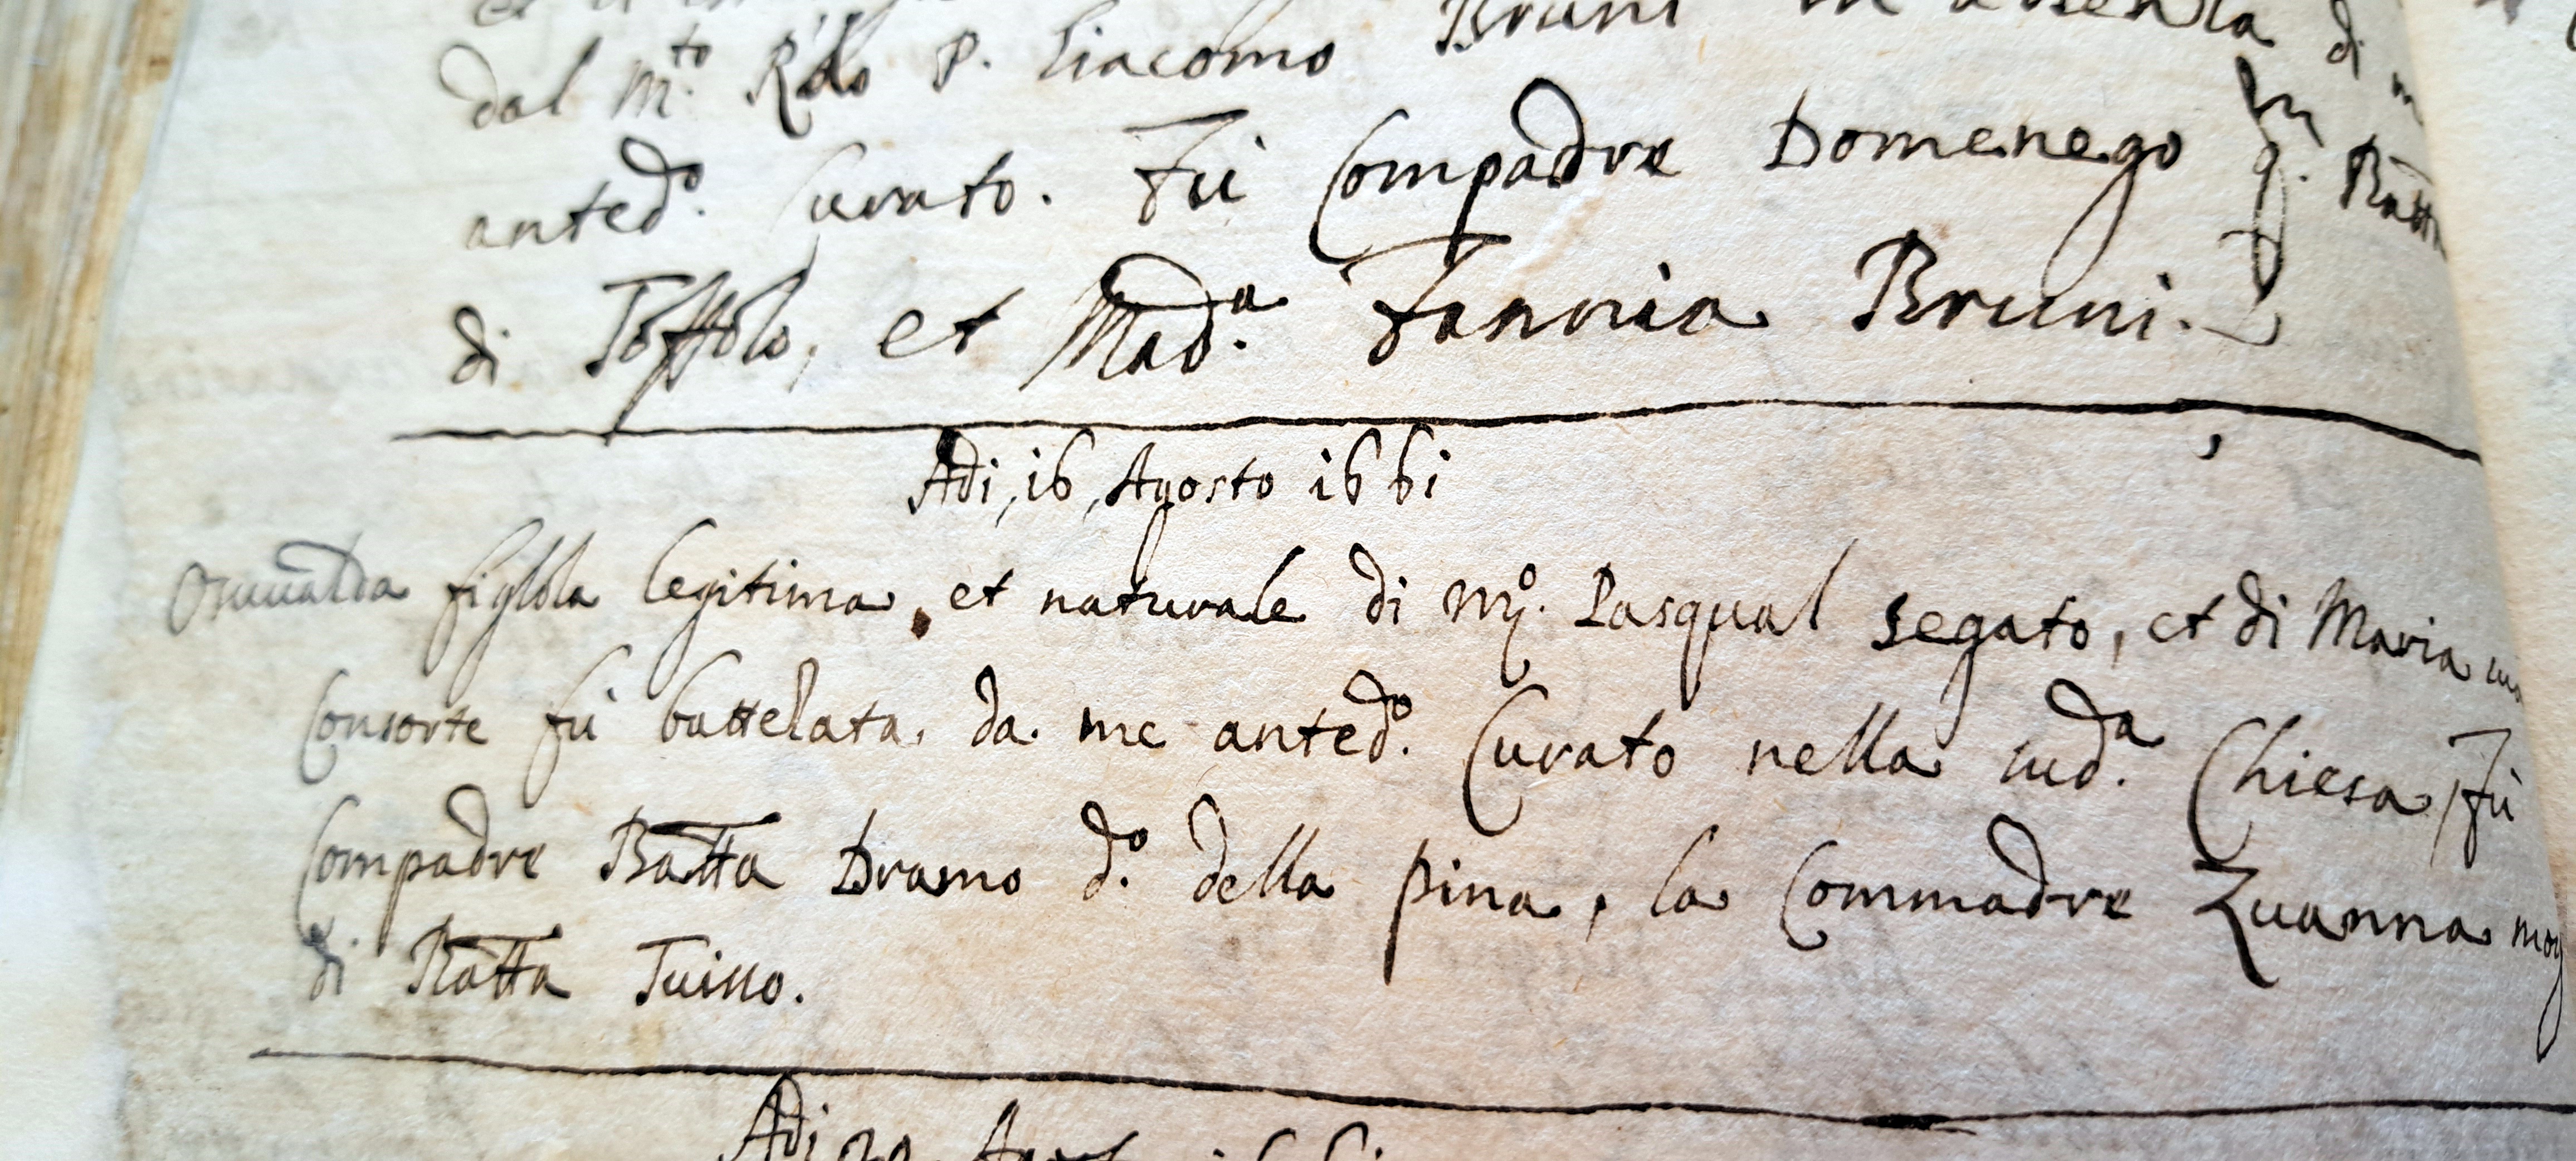 dal m.to R.do P. Giacomo Bruni in absenza di
anted.o Curato. Fù Compadre Domenego q. Batta
di Toffolo, et Mad.a Fannia Bruni.
Adi, i6, Agosto i66i
Osuualda figlola legitima, et naturale di m.o Pasqual segato, et di Maria sua
Consorte fù battelata da me anted.o Curato nella sud.a Chiesa, fù
Compadre Batta Dramo d.o della pina, la Commadre Zuanna mog
di Batta Tuisso.
Adi